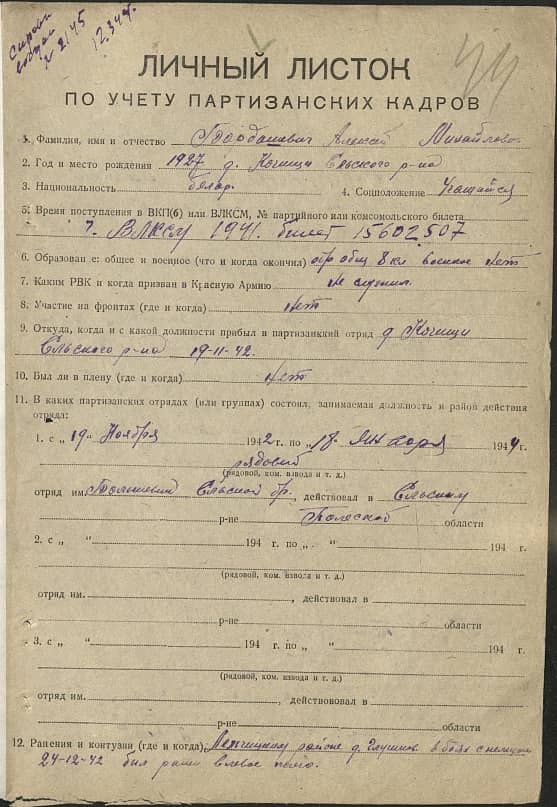 Справк
№ 2145
12.344.
44
ЛИЧНЫЙ ЛИСТОК
ПО УЧЕТУ ПАРТИЗАНСКИХ КАДРОВ
1. Фамилия, имя и отчество Алексей Михайлович
2. Год и место рождения 1927 д. Кочищи Ельского р-на
3. Национальность белар. 4. Соцположение Учащийся
5. Время поступления в ВКП(б) или ВЛКСМ, № партийного или комсомольского билета
ВЛКСМ 1941. билет 15602507
6. Образование: общее и военное (что и когда окончил) общ 8 кл военное нет
7. Каким РВК и когда призван в Красную Армию не служил
8. Участие на фронтах (где и когда) нет
9. Откуда, когда и с какой должности прибыл в партизанский отряд д Кочищи
Ельского р-на 19-11-42.
10. Был ли в плену (где и когда) нет
11. В каких партизанских отрядах (или группах) состоял, занимаемая должность и район действия
отряда:
1. с „19" Ноября 1942 г. по „18" января 1944 г.
рядовой
(рядовой, ком. взвода и т. д.)
отряд им. Ельской бр., действовал в Ельским
р-не Полеской области
2. с „ " 194 г. по „ " 194 г.
(рядовой, ком. взвода и т. д.)
отряд им. , действовал в
р-не области
3. с „ " 194 г. по „ " 194 г.
(рядовой, ком. взвода и т. д.)
отряд им. , действововал в
р-не области
12. Ранения и контузии (где и когда) районе д. Глушков в боях с немцами
24-12-42 был ранен в левое